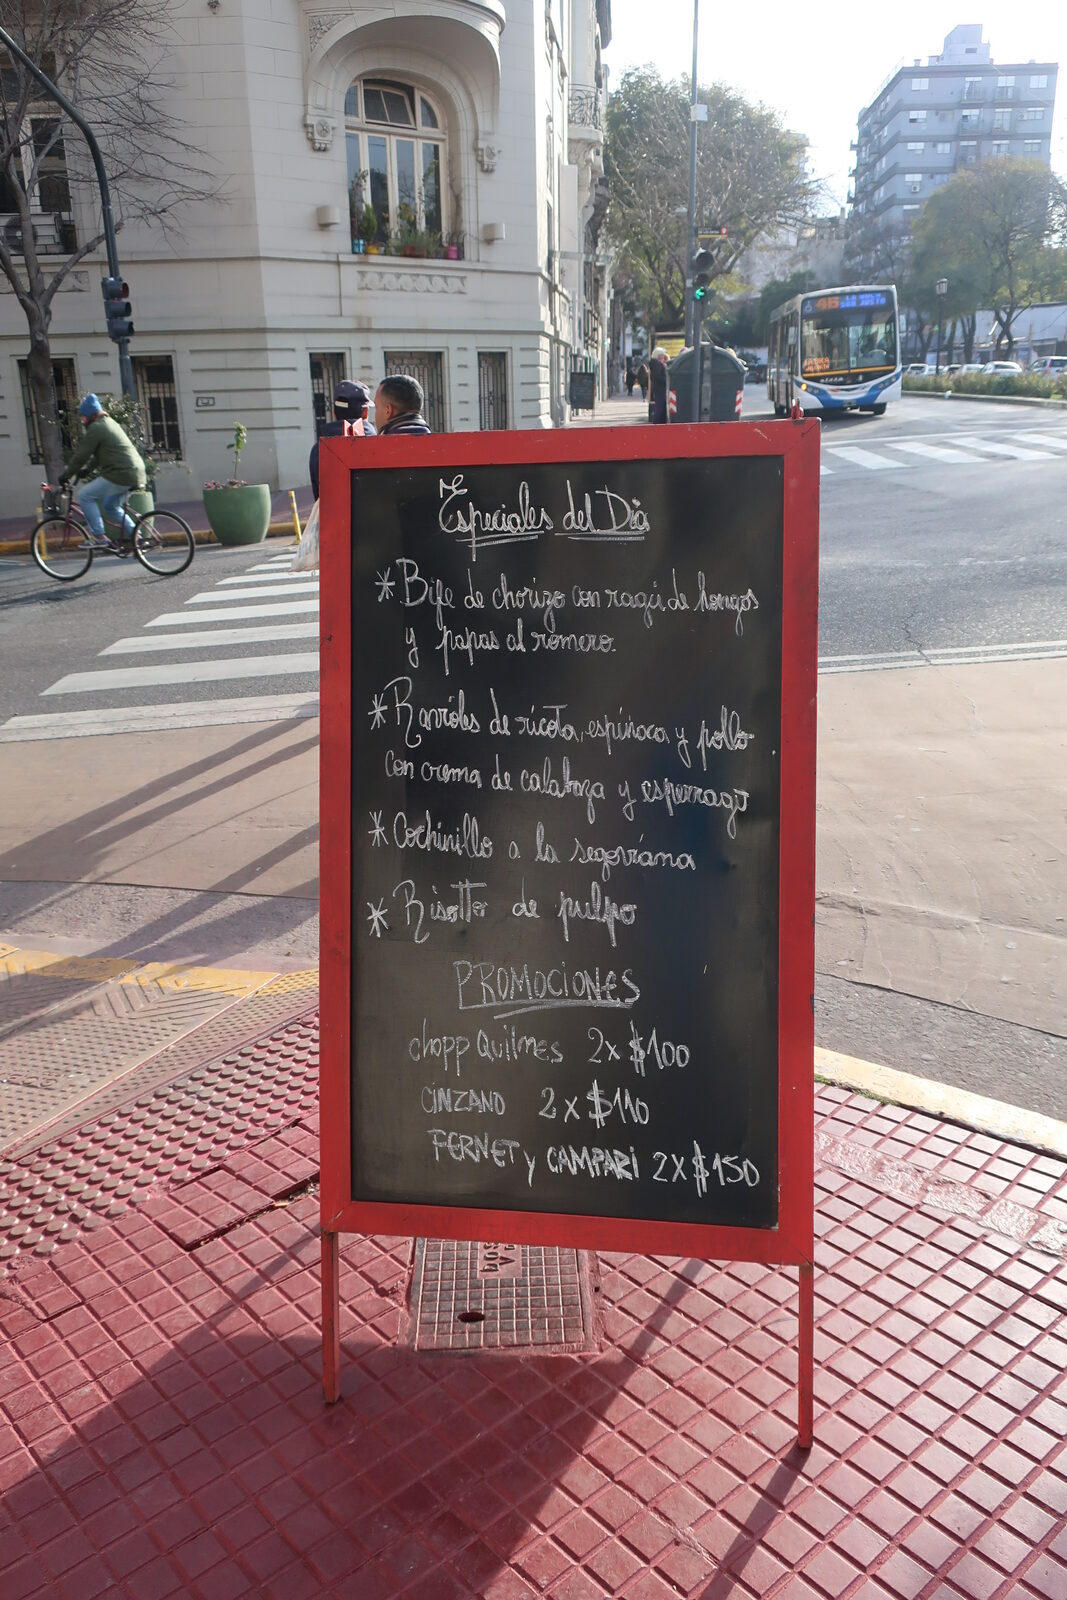 46 LA BOCA
SAN JUSTO
Especiales del Día
* Bife de chorizo con ragú de hongos
y papas al romero.
* Ravioles de ricota, espinaca y pollo
con crema de calabaza y esperrago
* Cochinillo a la segoviana
* Risotto de pulpo
PROMOCIONES
chopp Quilmes 2x $100
CINZANO 2x $110
FERNET y CAMPARI 2x $150